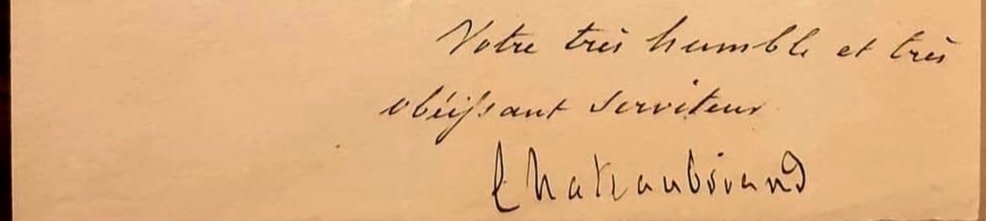 Votre très humble et très
obéissant serviteur
Chateaubriand